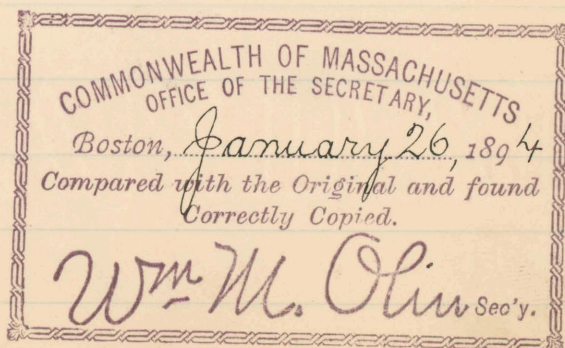 COMMONWEALTH OF MASSACHUSETTS
OFFICE OF THE SECRETARY,
Boston, January 26, 1894
Compared with the Original and found
Correctly Copied.
Wm M. Olin Sec'y.